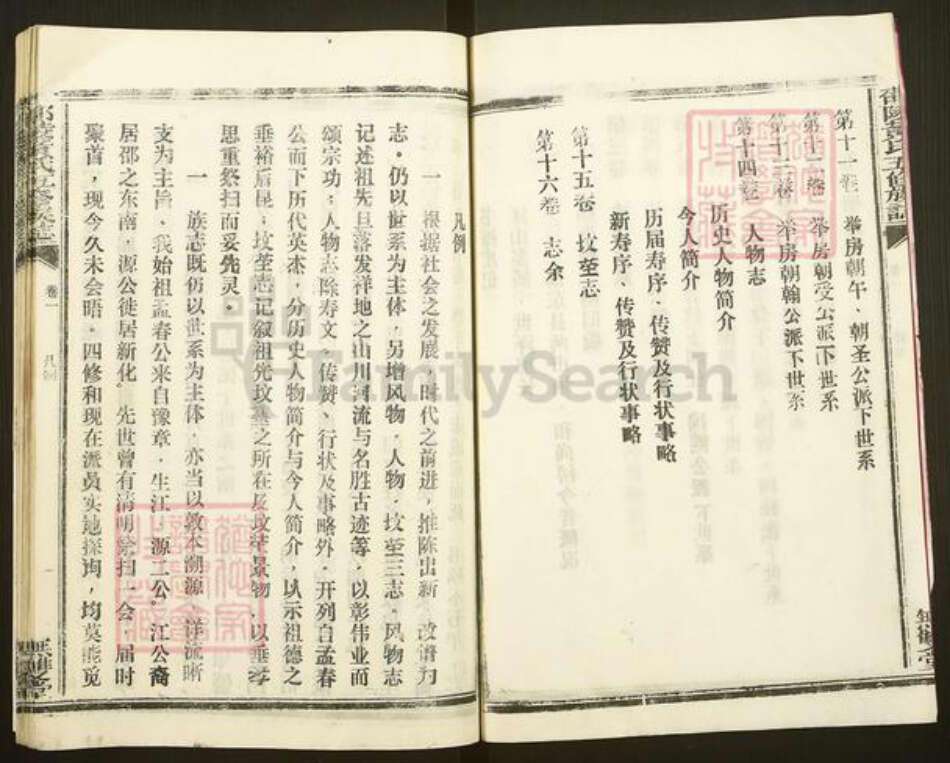 第十一卷 举房朝午、朝圣公派下世系
第十二卷 举房朝受公派下世系
第十三卷 举房朝翰公派下世系
第十四卷 人物志
历史人物简介
今人简介
历届寿序、传赞及行状事略
新寿序、传赞及行状事略
第十五卷 坟茔志
第十六卷 志余
凡例
一 根据社会之发展，时代之前进，推陈出新，改谱为
志。仍以世系为主体，另增风物，人物，坟茔三志。风物志
记述祖先旦落发祥地之山川河流与名胜古迹等，以彰伟业而
颂宗功；人物志除寿文、传赞、行状及事略外，开列自孟春
公而下历代英杰，分历史人物简介与今人简介，以示祖德之
垂裕后昆；坟茔志记叙祖先坟墓之所在及坟茔景物，以垂孝
思重祭扫而妥先灵。
一 族志既仍以世系为主体，亦当以敦本溯源，详流晰
支为主旨、我始祖孟春公来自豫章，生江，源二公。江公裔
居邵之东南，源公徙居新化。先世曾有清明除扫一会，届时
聚首，现今久未会晤。四修和现在派员实地探询，均莫能觅
卷一
凡例
FamilySearch